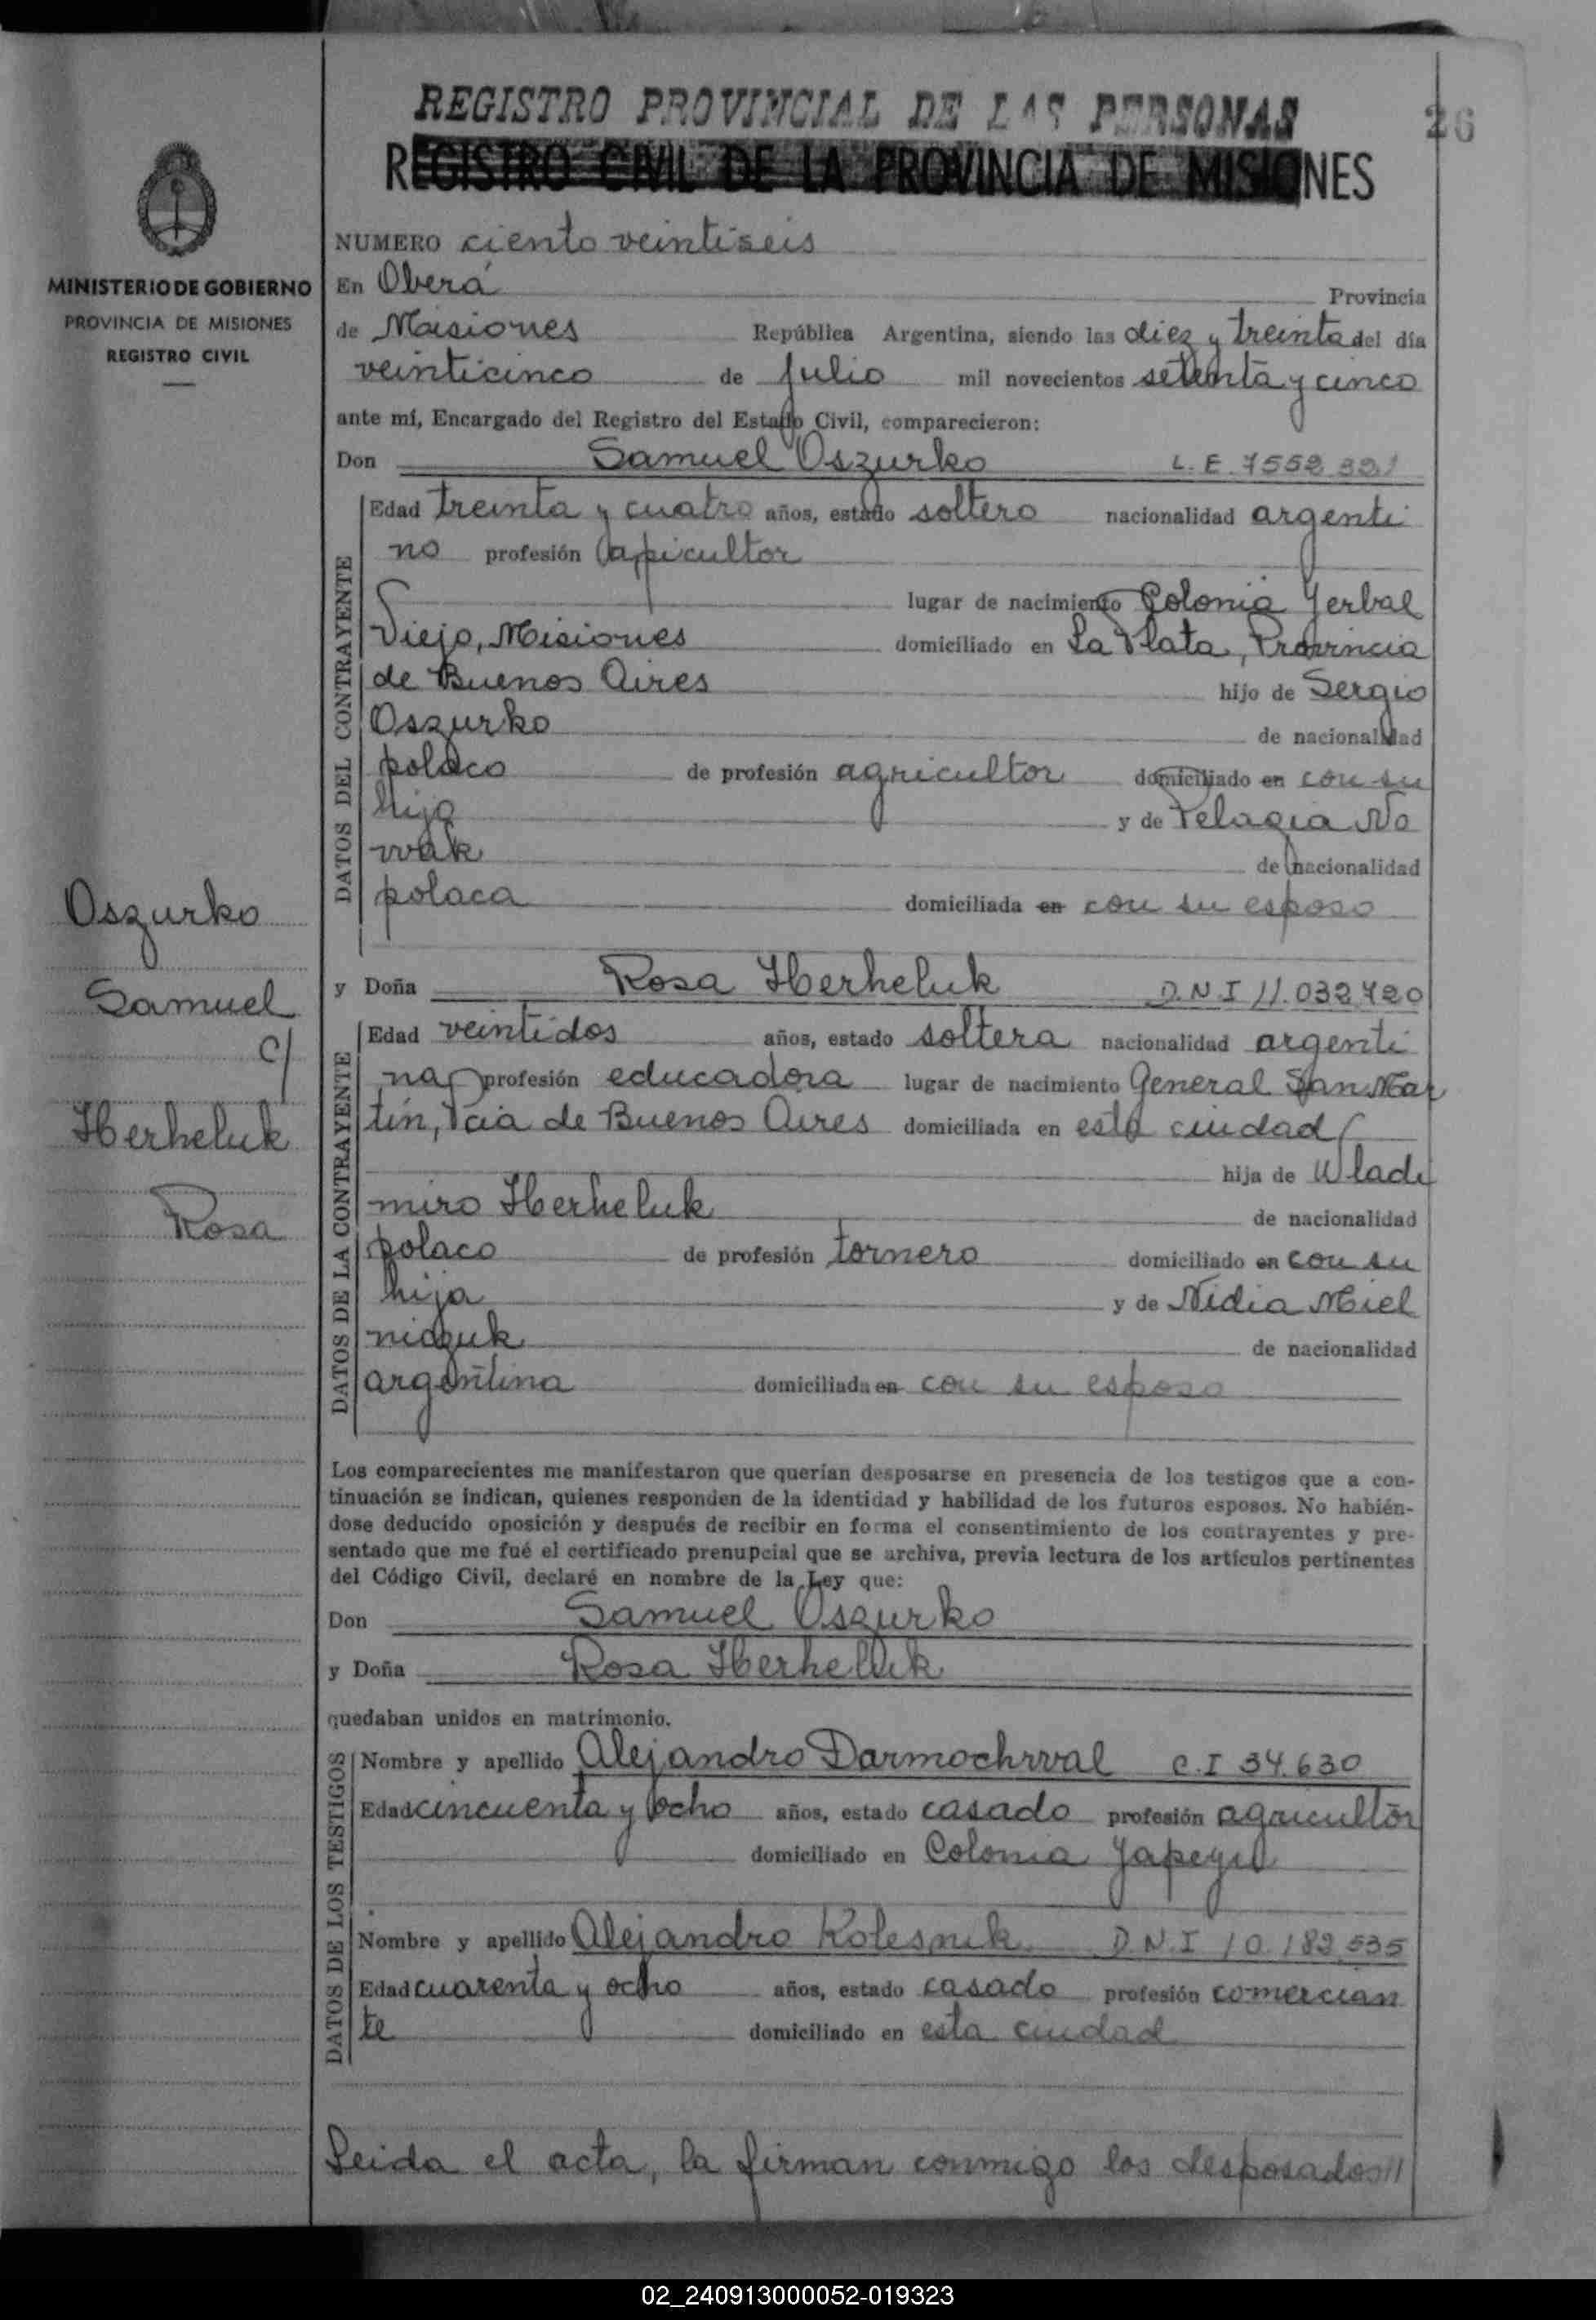 REGISTRO PROVINCIAL DE LAS PERSONAS
26
REGISTRO CIVIL DE LA PROVINCIA DE MISIONES
MINISTERIO DE GOBIERNO
PROVINCIA DE MISIONES
REGISTRO CIVIL
NUMERO ciento veintiseis
En Oberá Provincia
de Misiones República Argentina, siendo las diez y treinta del día
veinticinco de julio mil novecientos setenta y cinco
ante mí, Encargado del Registro del Estado Civil, comparecieron:
Don Samuel Oszurko L.E. 7552.321
DATOS DEL CONTRAYENTE
Edad treinta y cuatro años, estado soltero nacionalidad argenti
no profesión apicultor
lugar de nacimiento Colonia Yerbal
Viejo, Misiones domiciliado en La Plata, Provincia
de Buenos Aires hijo de Sergio
Oszurko de nacionalidad
polaco de profesión agricultor domiciliado en con su
hijo y de Pelagia No
wak de nacionalidad
polaca domiciliada en con su esposo
Oszurko
Samuel
c/
Herheluk
Rosa
y Doña Rosa Herheluk D.N.I 11.032.720
DATOS DE LA CONTRAYENTE
Edad veintidos años, estado soltera nacionalidad argenti
na profesión educadora lugar de nacimiento General San Mar
tín, Pcia de Buenos Aires domiciliada en esta ciudad
hija de Wladi
miro Herheluk de nacionalidad
polaco de profesión tornero domiciliado en con su
hija y de Nidia Miel
niczuk de nacionalidad
argentina domiciliada en con su esposo
Los comparecientes me manifestaron que querían desposarse en presencia de los testigos que a con-
tinuación se indican, quienes responden de la identidad y habilidad de los futuros esposos. No habién-
dose deducido oposición y después de recibir en forma el consentimiento de los contrayentes y pre-
sentado que me fué el certificado prenupcial que se archiva, previa lectura de los artículos pertinentes
del Código Civil, declaré en nombre de la Ley que:
Don Samuel Oszurko
y Doña Rosa Herheluk
quedaban unidos en matrimonio.
DATOS DE LOS TESTIGOS
Nombre y apellido Alejandro Darmochwal C.I 34.630
Edad cincuenta y ocho años, estado casado profesión agricultor
domiciliado en Colonia Yapeyú
Nombre y apellido Alejandro Kolesnik D.N.I 10.182.535
Edad cuarenta y ocho años, estado casado profesión comercian
te domiciliado en esta ciudad
Leida el acta, la firman conmigo los desposados//
02_240913000052-019323